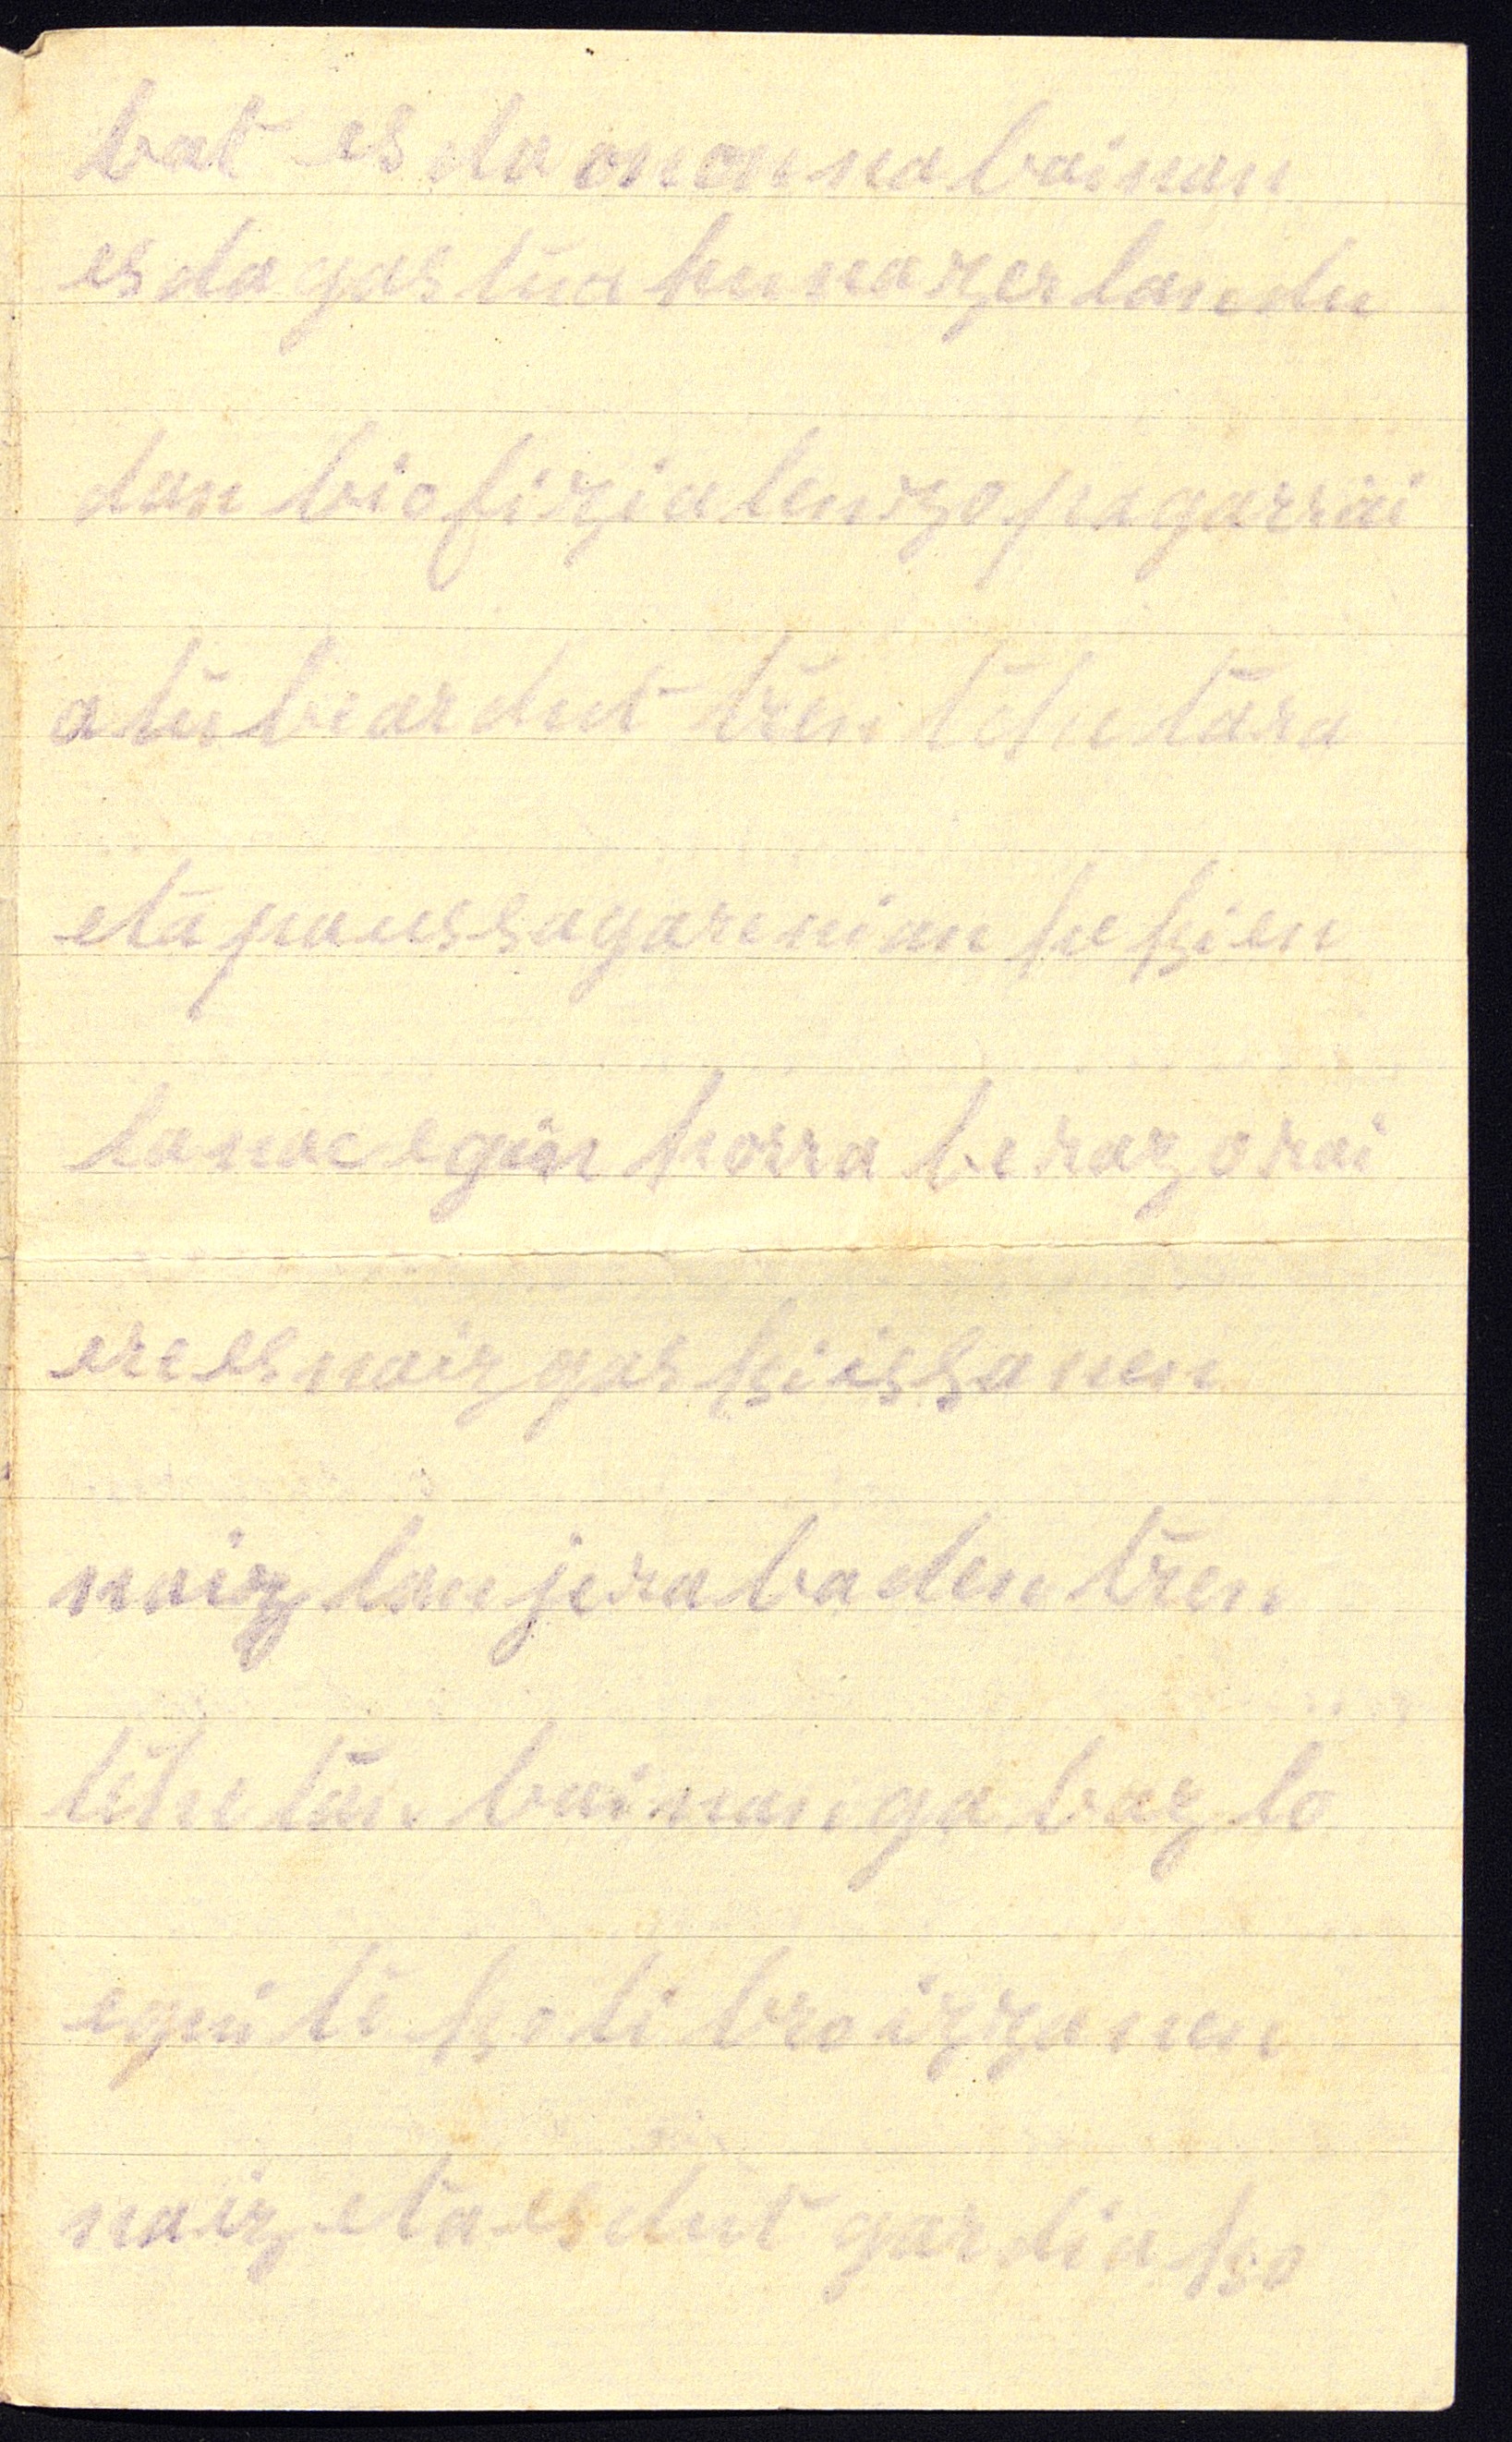 bat es da onon na bainan
es da gastua hunazer landu
dan bi ofizialen zopagarrai
atu biar dut tren tchutara
eta paussagarenian hekien
lanac egin horra beraz orai
ere es naiz gaski issanen
naiz lan jera ba den tren
tchutan bainan gabaz lo
egui te ko libro izzanen
naiz eta es dut gardiako